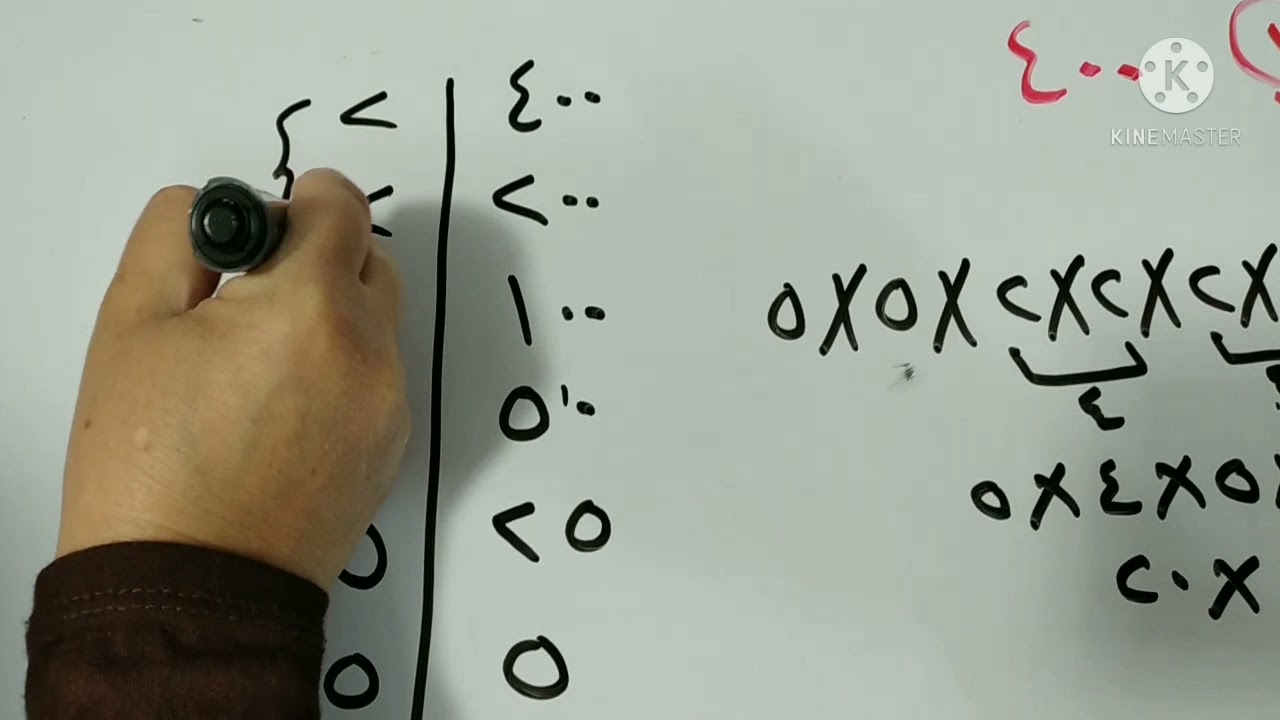 ٤٠٠
K
KINEMASTER
٢ ٤٠٠
٢ ٢٠٠
١٠٠
٥٠
٥ ٢٥
٥ ٥
٥X٥X٢X٢X٢X
٤
٥X٤X٥
٢٠X